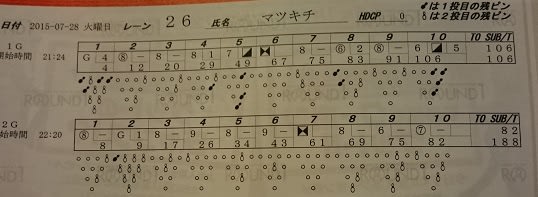 日付 2015-07-28 火曜日 レーン 26 氏名 マツキチ HDCP 0
は1投目の残ピン
は2投目の残ピン
1G 1 2 3 4 5 6 7 8 9 10 TO SUB/T
開始時間 21:24 G 4 ⑧ － 8 － 8 1 7 ◢ 8 － ⑥ 2 ⑧ － 6 ◢ 5 106
4 12 20 29 49 67 75 83 91 106 106
ROUND1
2G 1 2 3 4 5 6 7 8 9 10 TO SUB/T
開始時間 22:20 ⑧ － G 1 8 － 9 － 8 － 9 － 8 － 6 － ⑦ － 82
8 9 17 26 34 43 61 69 75 82 188